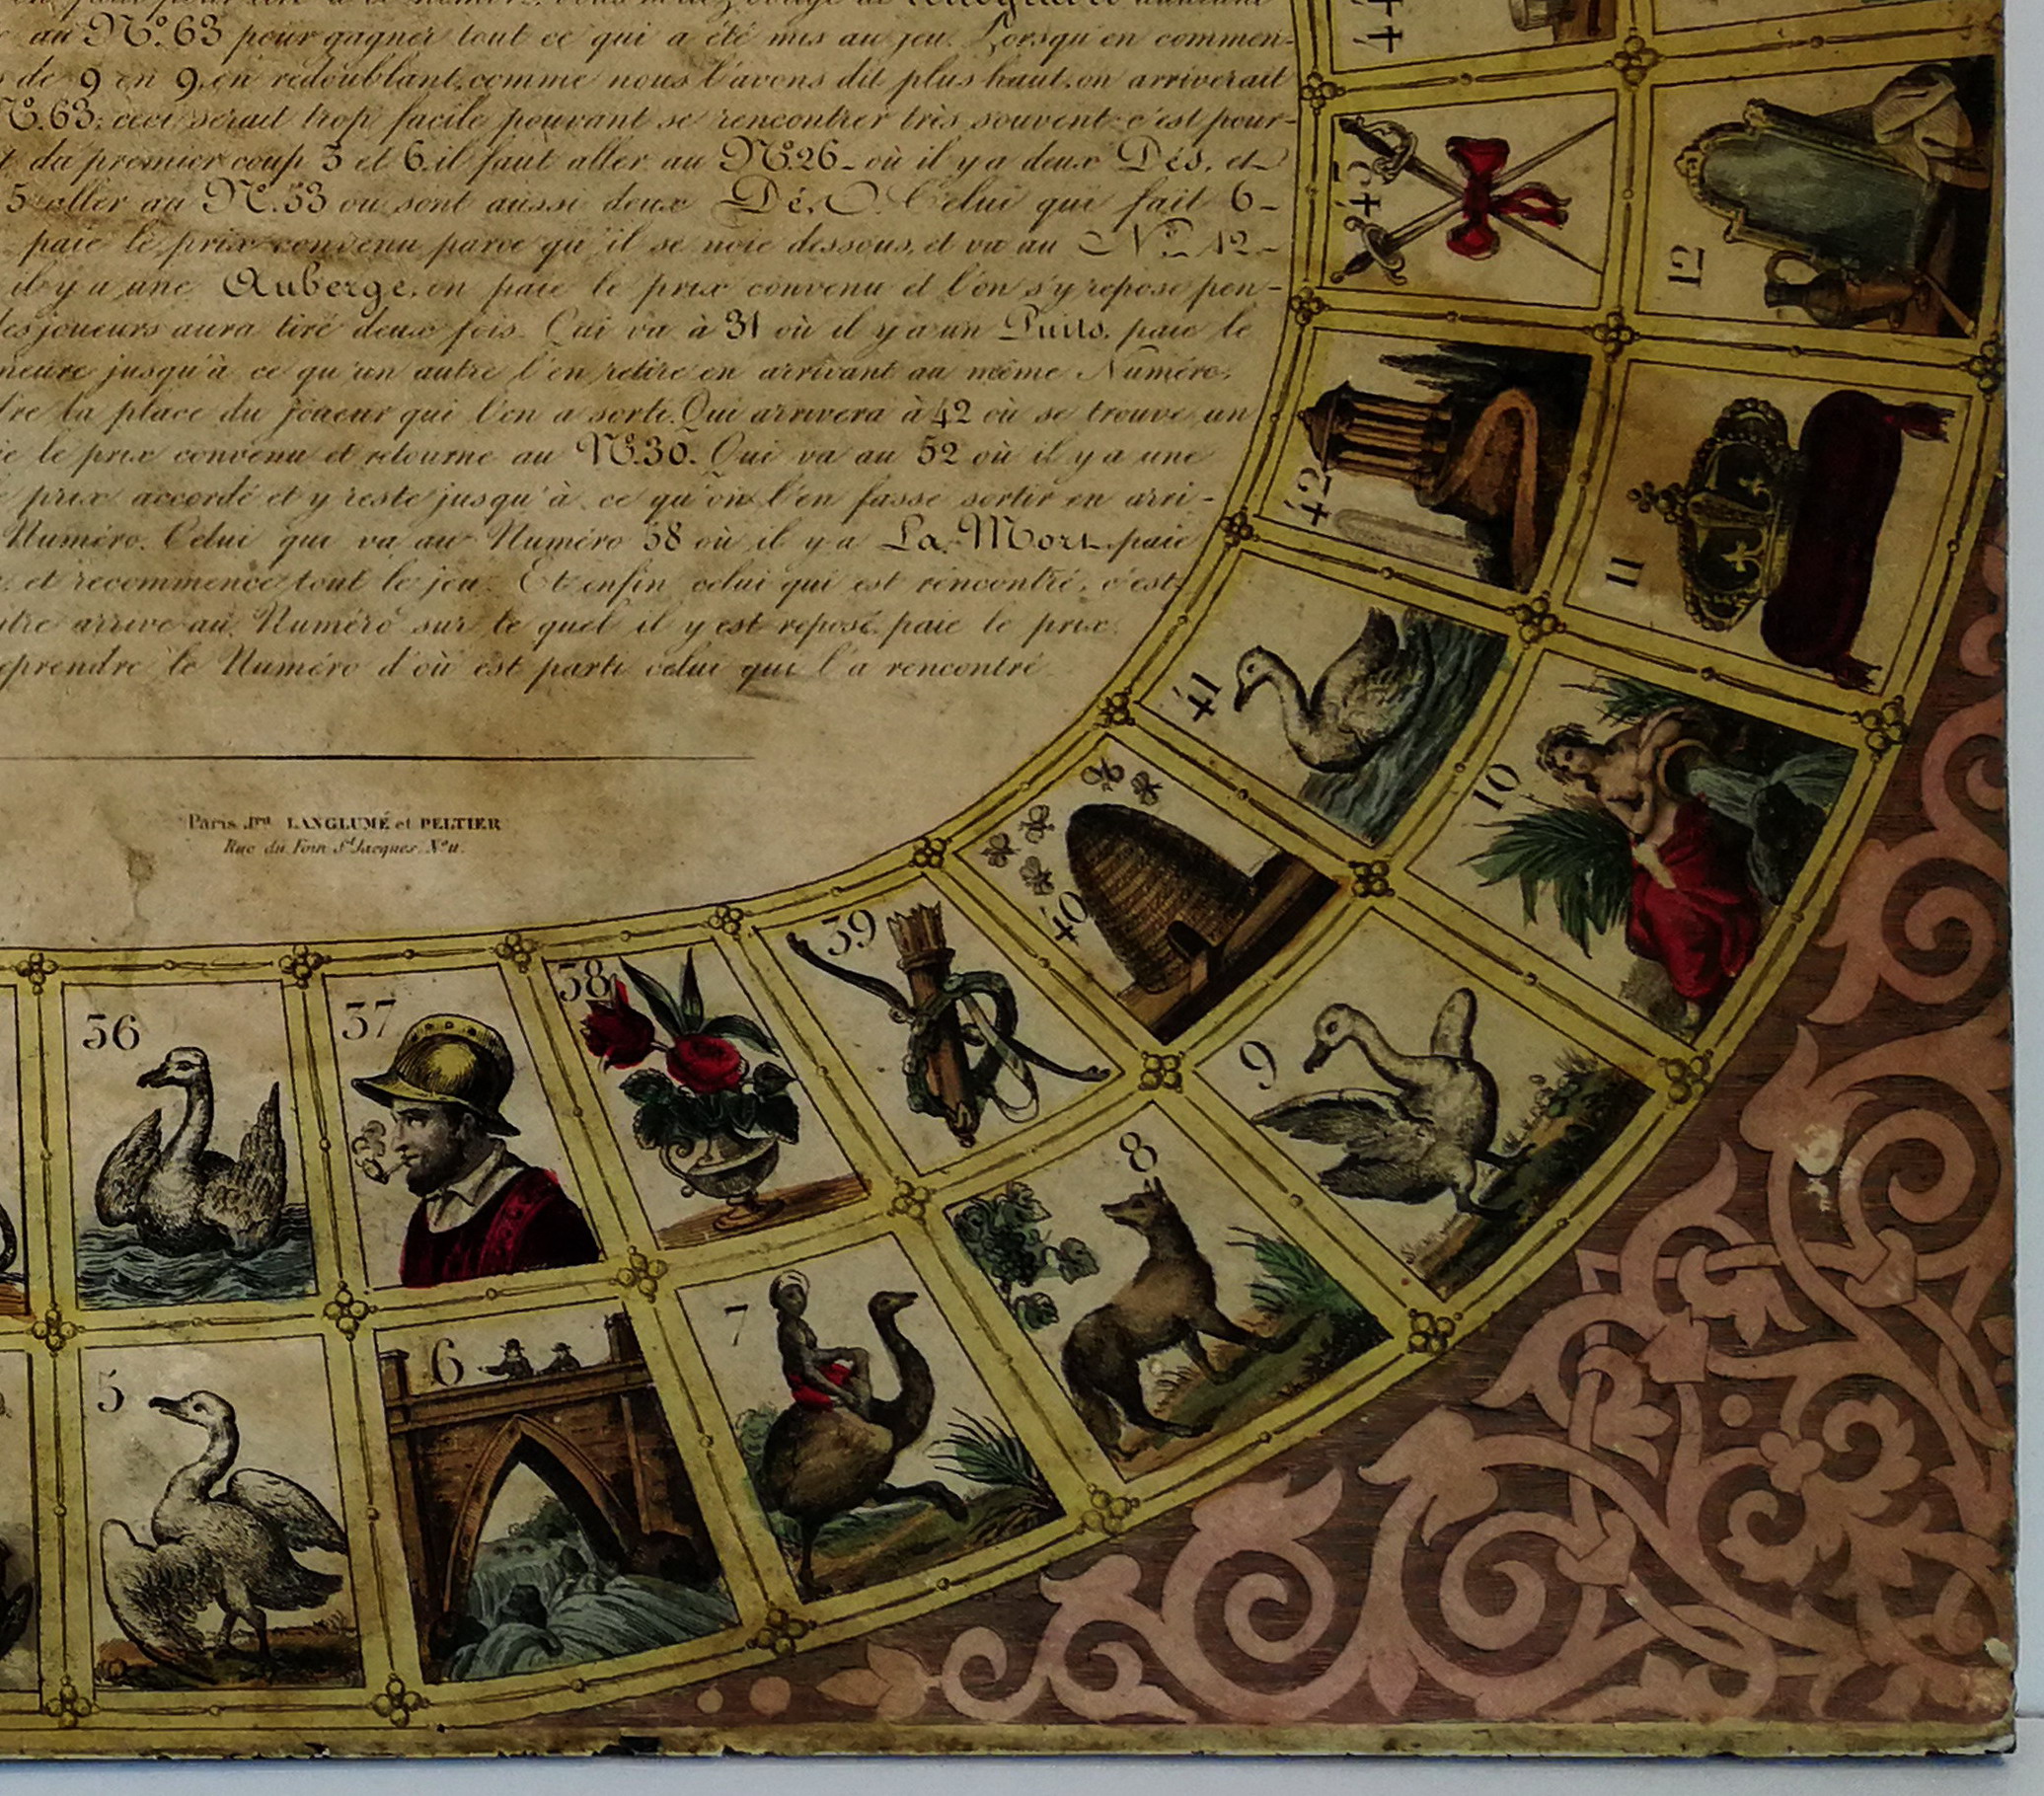 au Nº. 63 pour gagner tout ce qui a été mis au jeu. Lorsqu'en commen-
de 9 en 9, en redoublant, comme nous l'avons dit plus haut, on arriverait
Nº. 63; ceci serait trop facile pouvant se rencontrer très souvent c'est pour-
du premier coup 3 et 6. il faut aller au Nº. 26 - où il y a deux Dés, et
5 aller au Nº. 53 ou sont aussi deux Dés. Celui qui fait 6 -
paie le prix convenu parce qu'il se noie dessous, et va au Nº. 12 -
il y a une Auberge, on paie le prix convenu et l'on s'y repose pen-
des joueurs aura tiré deux fois. Qui va à 31 où il y a un Puits, paie le
jusqu'à ce qu'un autre l'en retire en arrivant au même Numéro,
la place du joueur qui l'en a sorti. Qui arrivera à 42 où se trouve un
le prix convenu et retourne au Nº. 30. Qui va au 52 où il y a une
prix accordé et y reste jusqu'à ce qu'on l'en fasse sortir en arri-
Numéro. Celui qui va au Numéro 58 où il y a La Mort, paie
et recommence tout le jeu. Et enfin celui qui est rencontré, c'est-
arrive au Numéro sur le quel il y est reposé, paie le prix
reprendre le Numéro d'où est parti celui qui l'a rencontré
Paris, LANGLUMÉ et PELTIER
Rue du Foin St. Jacques, Nº 11.
44
43
12
42
11
41
10
40
39
9
38
37
36
8
7
6
5